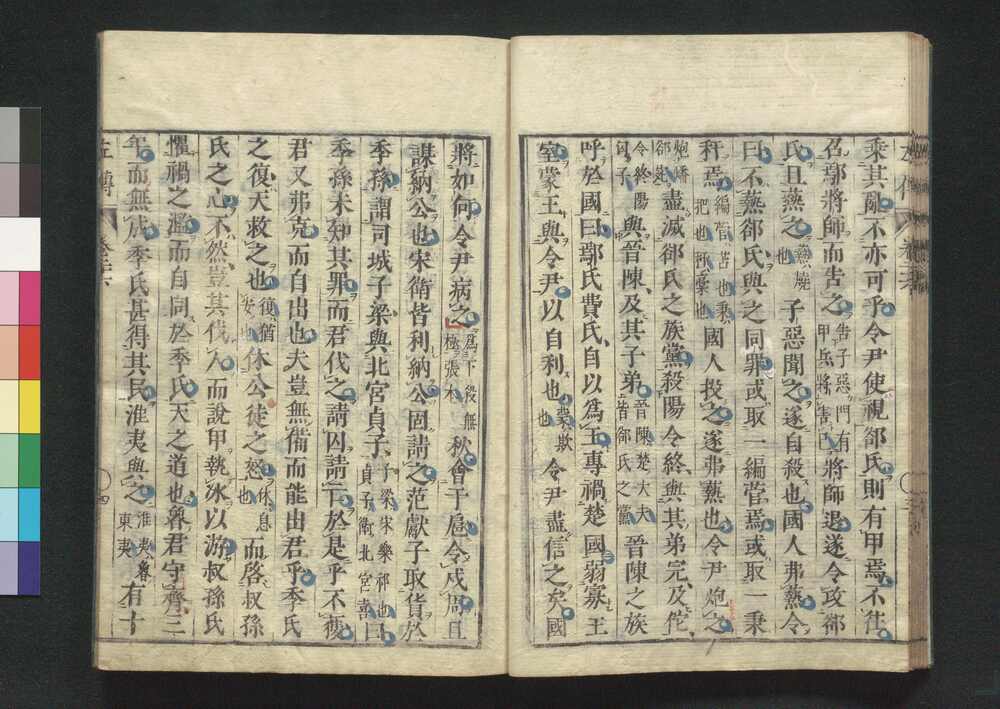 左傳 卷二六
乘其亂不亦可乎令尹使視郤氏則有甲焉不往
召鄢將師而告之告子惡門有甲兵將害己將師退遂令攻郤
氏且爇之爇燒也子惡聞之遂自殺也國人弗爇令
曰不爇郤氏與之同罪或取一編菅焉或取一秉
秆焉編菅苫也秉把也秆稾也國人投之遂弗爇也令尹炮之
炮燔郤氏盡滅郤氏之族黨殺陽令終與其弟完及佗
令終陽匄子與晉陳及其子弟晉陳楚大夫皆郤氏之黨晉陳之族
呼於國曰鄢氏費氏自以爲王專禍楚國弱寡王
室蒙王與令尹以自利也蒙欺也令尹盡信之矣國
將如何令尹病之爲下殺無極張本秋會于扈令戍周且
謀納公也宋衛皆利納公固請之范獻子取貨於
季孫謂司城子梁與北宮貞子子梁宋樂祁也貞子衛北宮喜曰
季孫未知其罪而君伐之請囚請亡於是乎不獲
君又弗克而自出也夫豈無備而能出君乎季氏
之復天救之也復猶安也休公徒之怒休息也而啓叔孫
氏之心不然豈其伐人而說甲執冰以游叔孫氏
懼禍之濫而自同於季氏天之道也魯君守齊三
年而無成季氏甚得其民淮夷與之淮夷魯東夷有十
左傳 卷二六